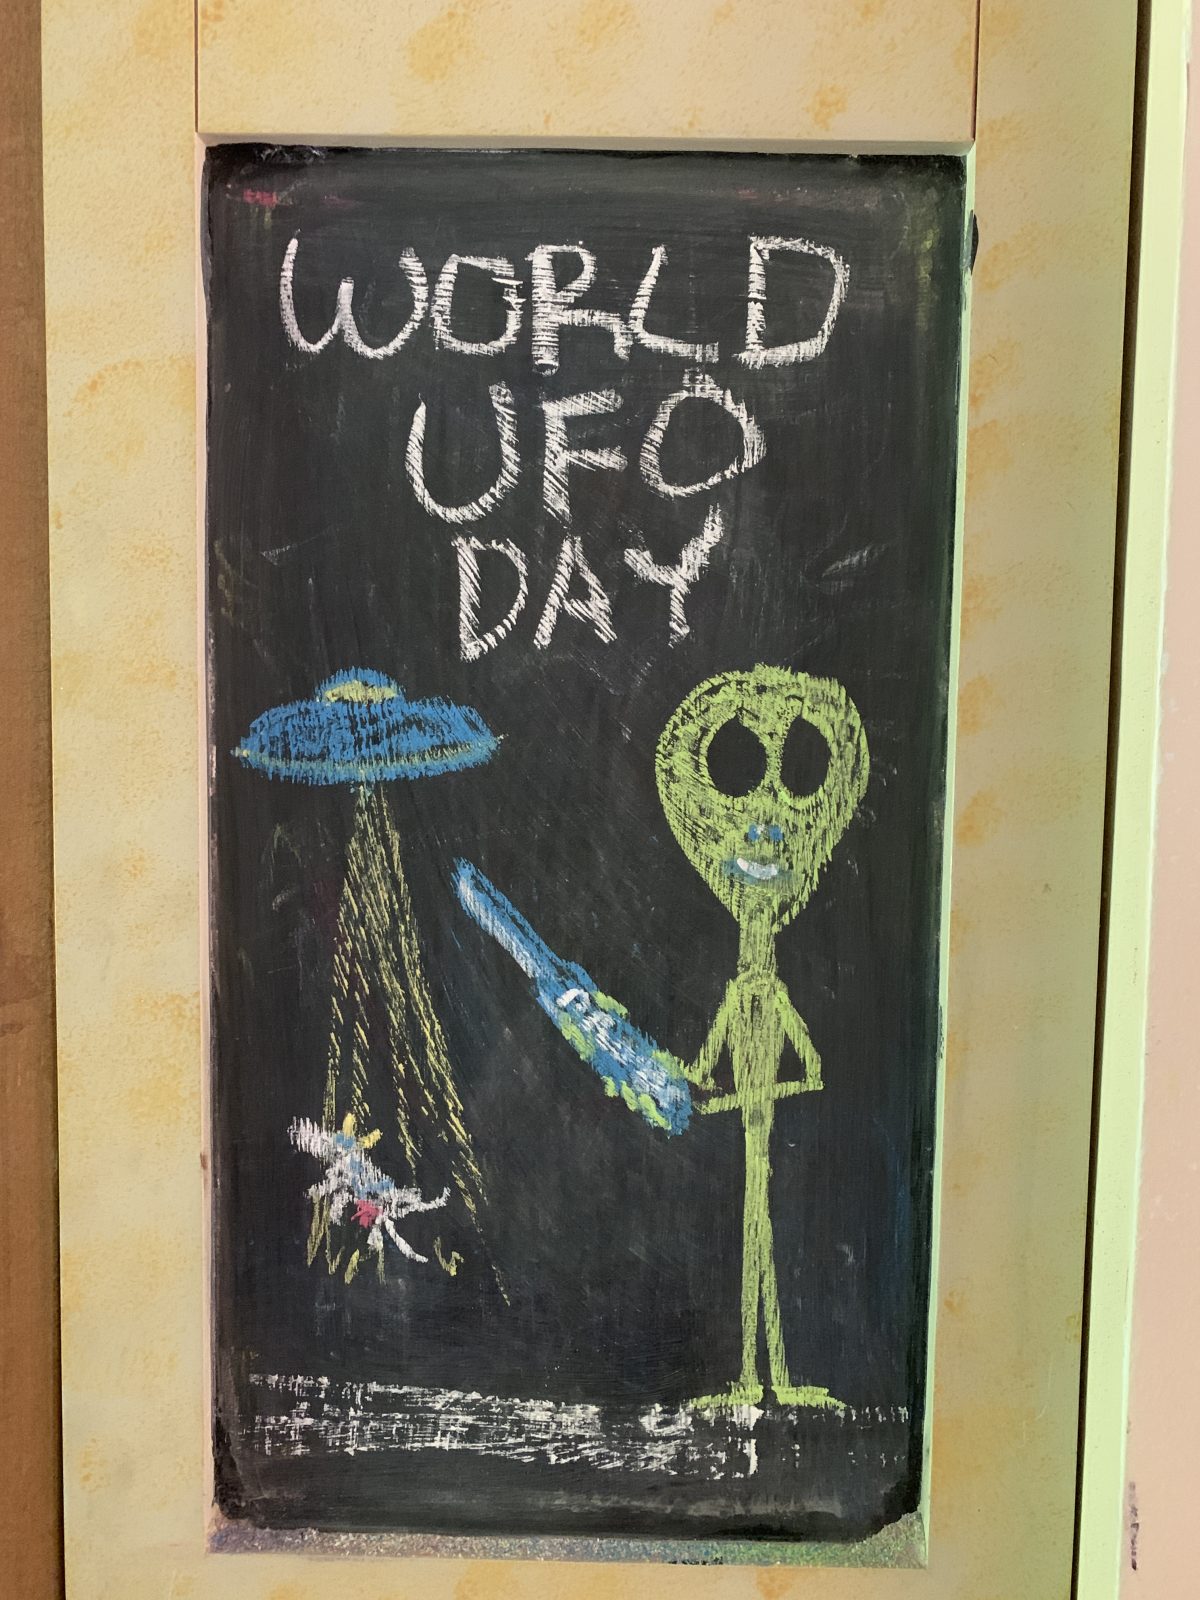 WORLD
UFO
DAY